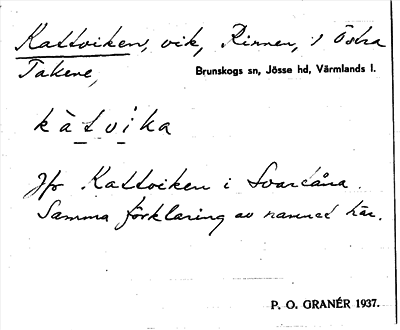 Kattviken, vik, Rinnen, i Östra
Takene,
Brunskogs sn, Jösse hd, Värmlands l.
kàtvika
Jfr Kattviken i Svartåna.
Samma förklaring av namnet här.
P. O. GRANÉR 1937.